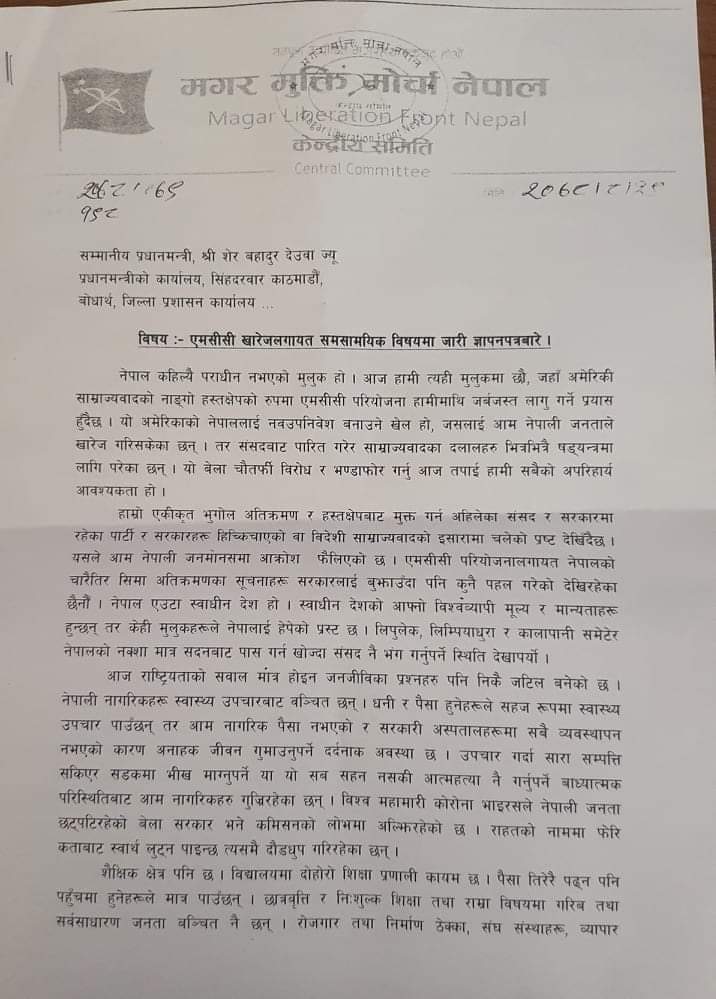 मगर मुक्ति मोर्चा नेपाल
Magar Liberation Front Nepal
केन्द्रीय समिति
Central Committee
२०७८।०७९
१९८
२०७८।८।२९
सम्मानीय प्रधानमन्त्री, श्री शेर बहादुर देउवा ज्यू
प्रधानमन्त्रीको कार्यालय, सिंहदरवार काठमाडौं,
बोधार्थ, जिल्ला प्रशासन कार्यालय ...
विषय :- एमसीसी खारेजलगायत समसामयिक विषयमा जारी ज्ञापनपत्रबारे ।
नेपाल कहिल्यै पराधीन नभएको मुलुक हो । आज हामी त्यही मुलुकमा छौ, जहाँ अमेरिकी
साम्राज्यवादको नाङ्गो हस्तक्षेपको रुपमा एमसीसी परियोजना हामीमाथि जर्बजस्त लागु गर्ने प्रयास
हुँदैछ । यो अमेरिकाको नेपाललाई नवउपनिवेश बनाउने खेल हो, जसलाई आम नेपाली जनताले
खारेज गरिसकेका छन् । तर संसदबाट पारित गरेर साम्राज्यवादका दलालहरु भित्रभित्रै षड्यन्त्रमा
लागि परेका छन् । यो बेला चौतर्फी विरोध र भण्डाफोर गर्नु आज तपाई हामी सबैको अपरिहार्य
आवश्यकता हो ।
हाम्रो एकीकृत भुगोल अतिक्रमण र हस्तक्षेपबाट मुक्त गर्न अहिलेका संसद र सरकारमा
रहेका पार्टी र सरकारहरू हिच्किचाएको वा विदेशी साम्राज्यवादको इसारामा चलेको प्रष्ट देखिंदैछ ।
यसले आम नेपाली जनमानसमा आक्रोश फैलिएको छ । एमसीसी परियोजनालगायत नेपालको
चारैतिर सिमा अतिक्रमणका सूचनाहरू सरकारलाई बुझाउँदा पनि कुनै पहल गरेको देखिरहेका
छैनौं । नेपाल एउटा स्वाधीन देश हो । स्वाधीन देशको आफ्नो विश्वव्यापी मूल्य र मान्यताहरू
हुन्छन् तर केही मुलुकहरूले नेपाललाई हेपेको प्रस्ट छ । लिपुलेक, लिम्पियाधुरा र कालापानी समेटेर
नेपालको नक्शा मात्र सदनबाट पास गर्न खोज्दा संसद नै भंग गर्नुपर्ने स्थिति देखापर्यो ।
आज राष्ट्रियताको सवाल मात्र होइन जनजीविका प्रश्नहरु पनि निकै जटिल बनेको छ ।
नेपाली नागरिकहरू स्वास्थ्य उपचारबाट वञ्चित छन् । धनी र पैसा हुनेहरूले सहज रूपमा स्वास्थ्य
उपचार पाउँछन् तर आम नागरिक पैसा नभएको र सरकारी अस्पतालहरूमा सबै व्यवस्थापन
नभएको कारण अनाहक जीवन गुमाउनुपर्ने दर्दनाक अवस्था छ । उपचार गर्दा सारा सम्पत्ति
सकिएर सडकमा भीख माग्नुपर्ने या यो सब सहन नसकी आत्महत्या नै गर्नुपर्ने बाध्यात्मक
परिस्थितिबाट आम नागरिकहरु गुज्रिरहेका छन् । विश्व महामारी कोरोना भाइरसले नेपाली जनता
छट्पटिरहेको बेला सरकार भने कमिसनको लोभमा अल्झिरहेको छ । राहतको नाममा फेरि
कताबाट स्वार्थ लुट्न पाइन्छ त्यसमै दौडधुप गरिरहेका छन् ।
शैक्षिक क्षेत्र पनि छ । विद्यालयमा दोहोरो शिक्षा प्रणाली कायम छ । पैसा तिरेरै पढ्न पनि
पहुँचमा हुनेहरूले मात्र पाउँछन् । छात्रवृत्ति र निःशुल्क शिक्षा तथा राम्रा विषयमा गरिब तथा
सर्वसाधारण जनता बञ्चित नै छन् । रोजगार तथा निर्माण ठेक्का, संघ संस्थाहरू, व्यापार